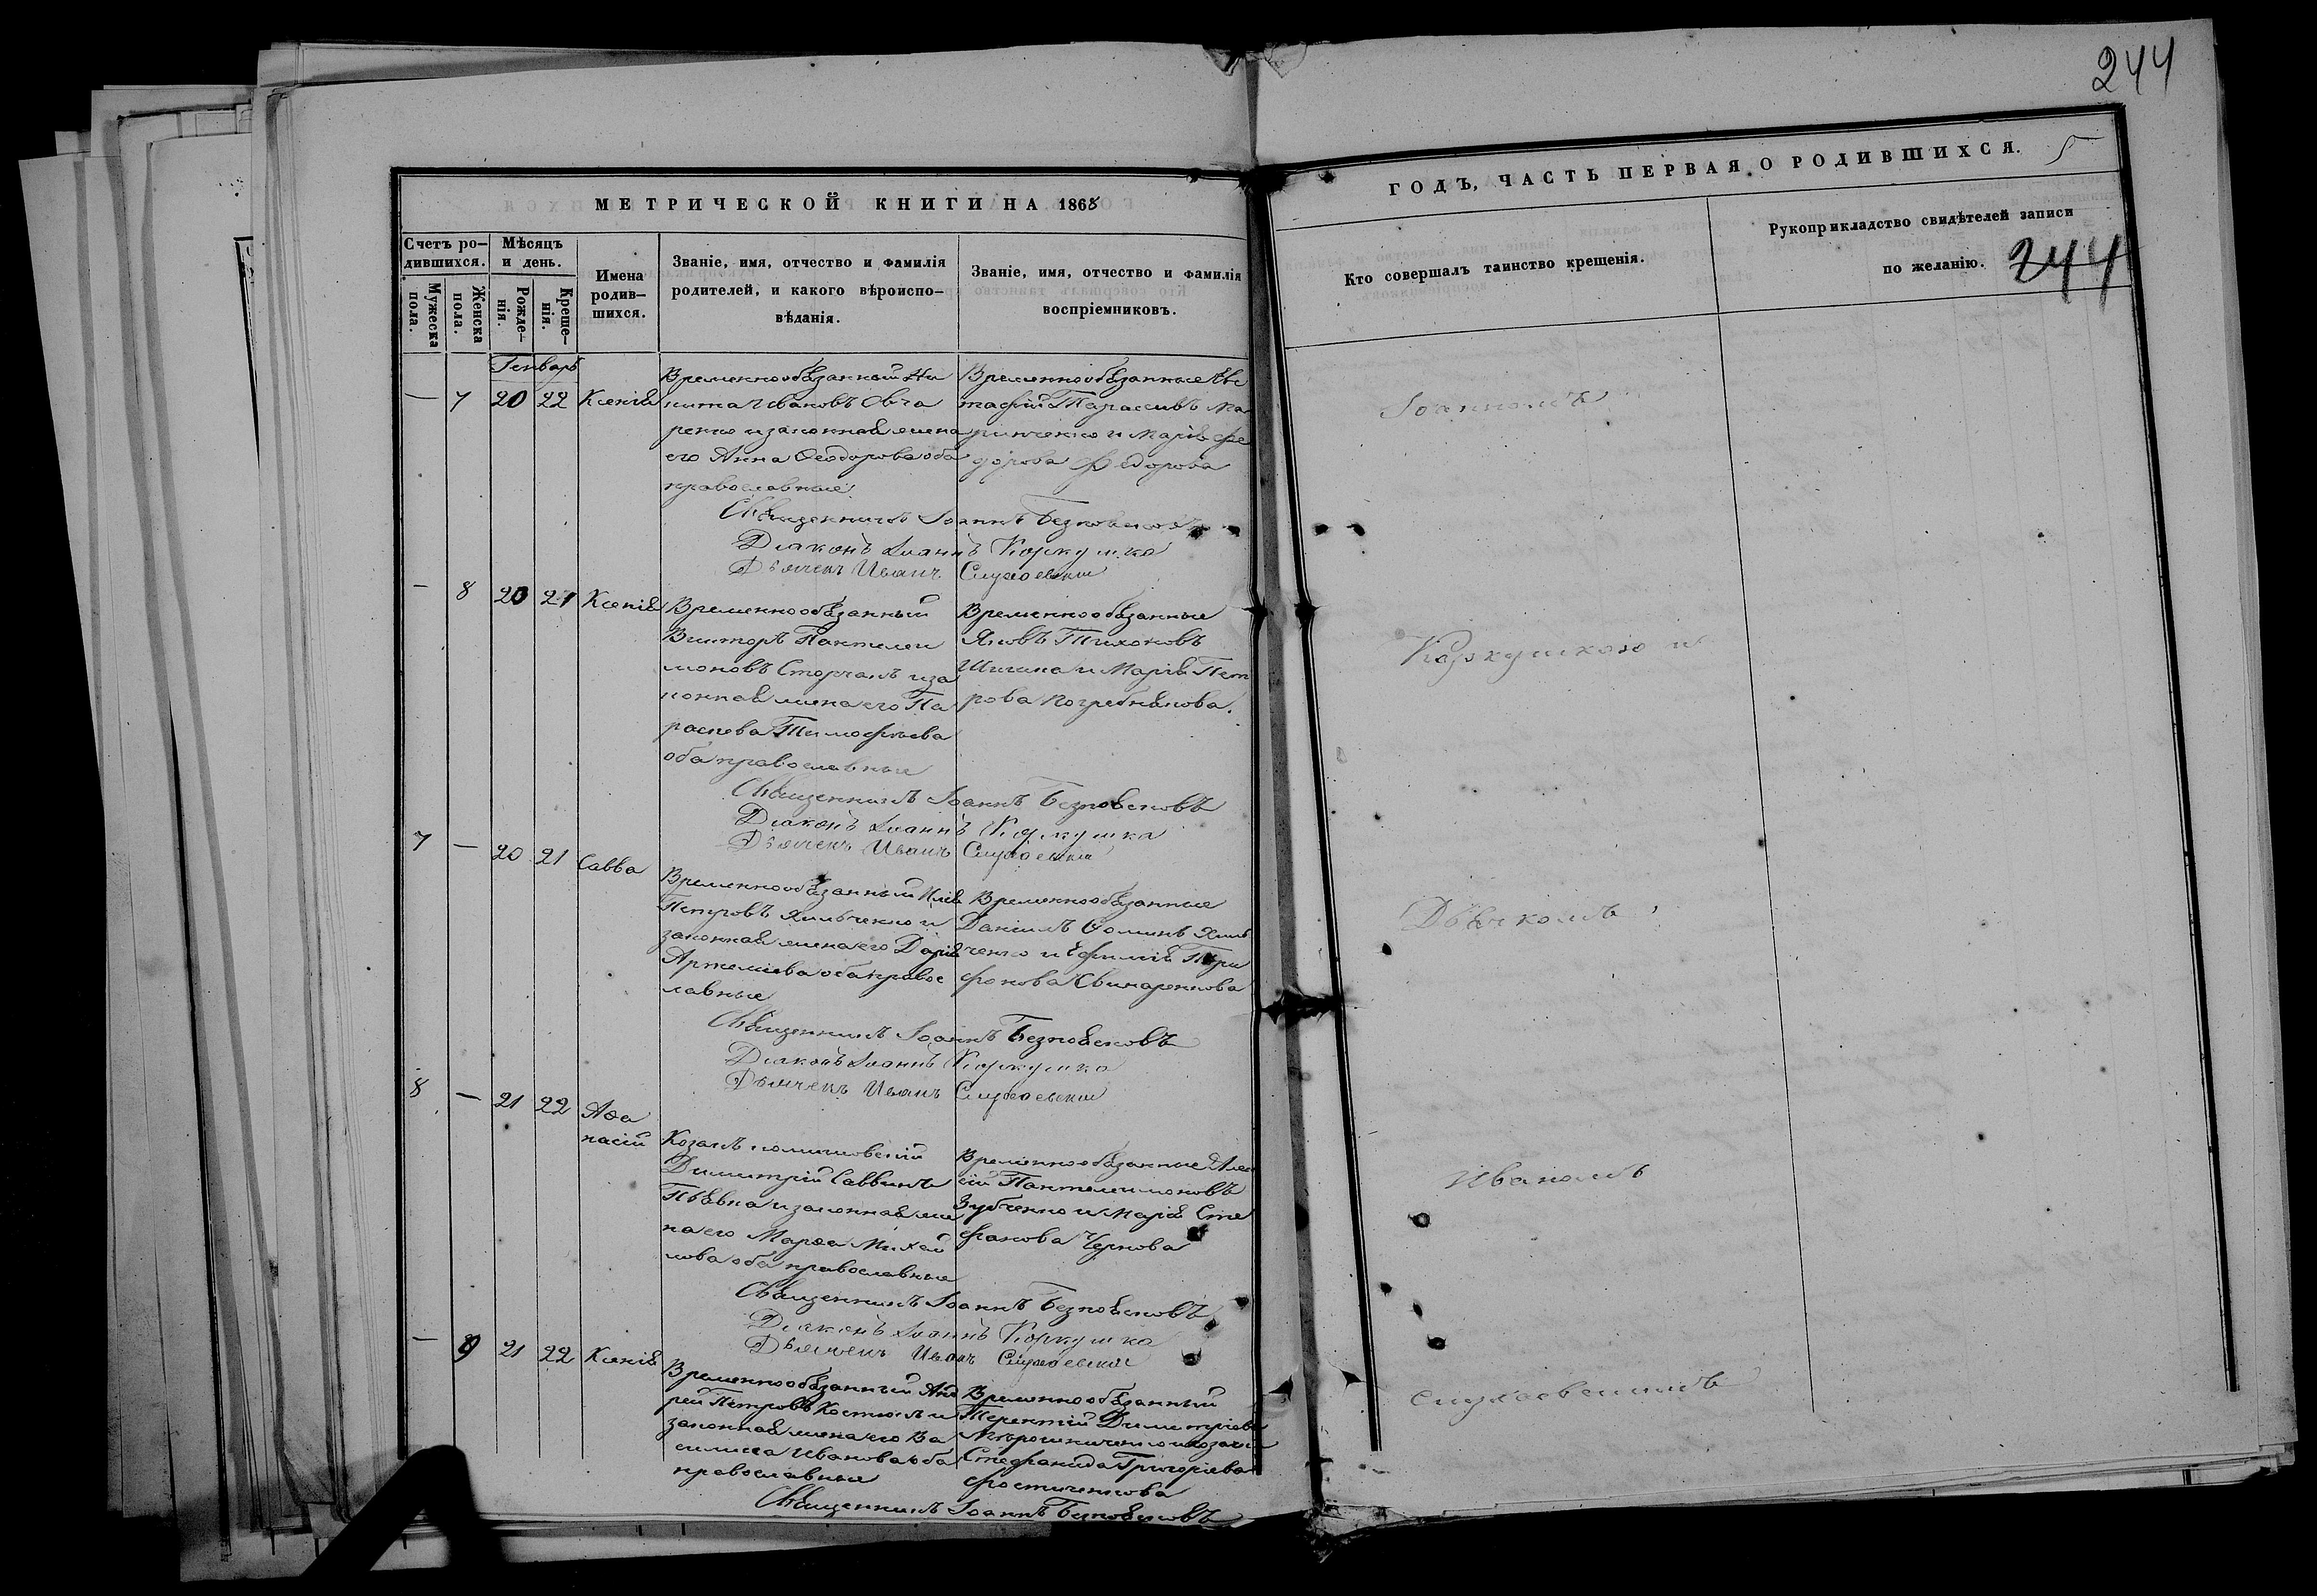 244
МЕТРИЧЕСКОЙ КНИГИ НА 1865
ГОДЪ, ЧАСТЬ ПЕРВАЯ О РОДИВШИХСЯ. 5
Счетъ ро-
дившихся.
Мужеска
пола.
Женска
пола.
Мѣсяцъ
и день.
Рожде-
нія.
Креще-
нія.
Имена
родив-
шихся.
Званіе, имя, отчество и фамилія
родителей, и какого вѣроиспо-
вѣданія.
Званіе, имя, отчество и фамилія
воспріемниковъ.
Кто совершалъ таинство крещенія.
Рукоприкладство свидѣтелей записи
по желанію.
244
Генварь
— 7 20 22 Ксенія
Временнообязанный Ни
кита Ивановъ
ренко и законная жена
его Анна Ѳеодорова оба
православные
Временнообязанные Ев
тафій Тарасовъ Ма
ринченко и Марія Фе
дорова
Священникъ Іоаннъ
Діаконъ Іоаннъ Коркушка
Дьячекъ Иванъ
— 8 20 21 Ксенія
Временнообязанный
Викторъ Пантелеи
моновъ Сторчакъ и за
конная жена его Па
раскева Тимофѣева
оба православные
Временнообязанные
Яковъ Тихоновъ
Шигина и Марія Пет
рова Погребнякова.
Священникъ Іоаннъ Безпояековъ
Діаконъ Іоаннъ Коркушка
Дьячекъ Иванъ
7 — 20 21 Савва
Временнообязанный Илія
Петровъ Хильченко и
законная жена его Дарія
Артеміева оба правос
лавные
Временнообязанные
Даніилъ Ѳоминъ Хиль
ченко и Ефимія Три
фонова Свинаренкова
Священникъ Іоаннъ
Діаконъ Іоаннъ Коркушка
Дьячекъ Иванъ
8 — 21 22 Аѳа
насій
Козакъ
Димитрій Саввинъ
и законная же
на его Марѳа Михай
лова оба православные
Временнообязанные Алек
сій Пантелеимоновъ
Зубченко и Марія Сте
фанова Чернова
Священникъ Іоаннъ
Діаконъ Іоаннъ Коркушка
Дьячекъ Иванъ
— 9 21 22 Ксенія
Временнообязанный Анд
рей Петровъ Костюкъ и
законная жена его Ва
силиса Иванова оба
православные
Временнообязанный
Терентій Димитріевъ
Мирошниченко и козачка
Стефанида Григоріева
Священникъ Іоаннъ
Іоанномъ
Коркушкою и
Дьячкомъ
Иваномъ